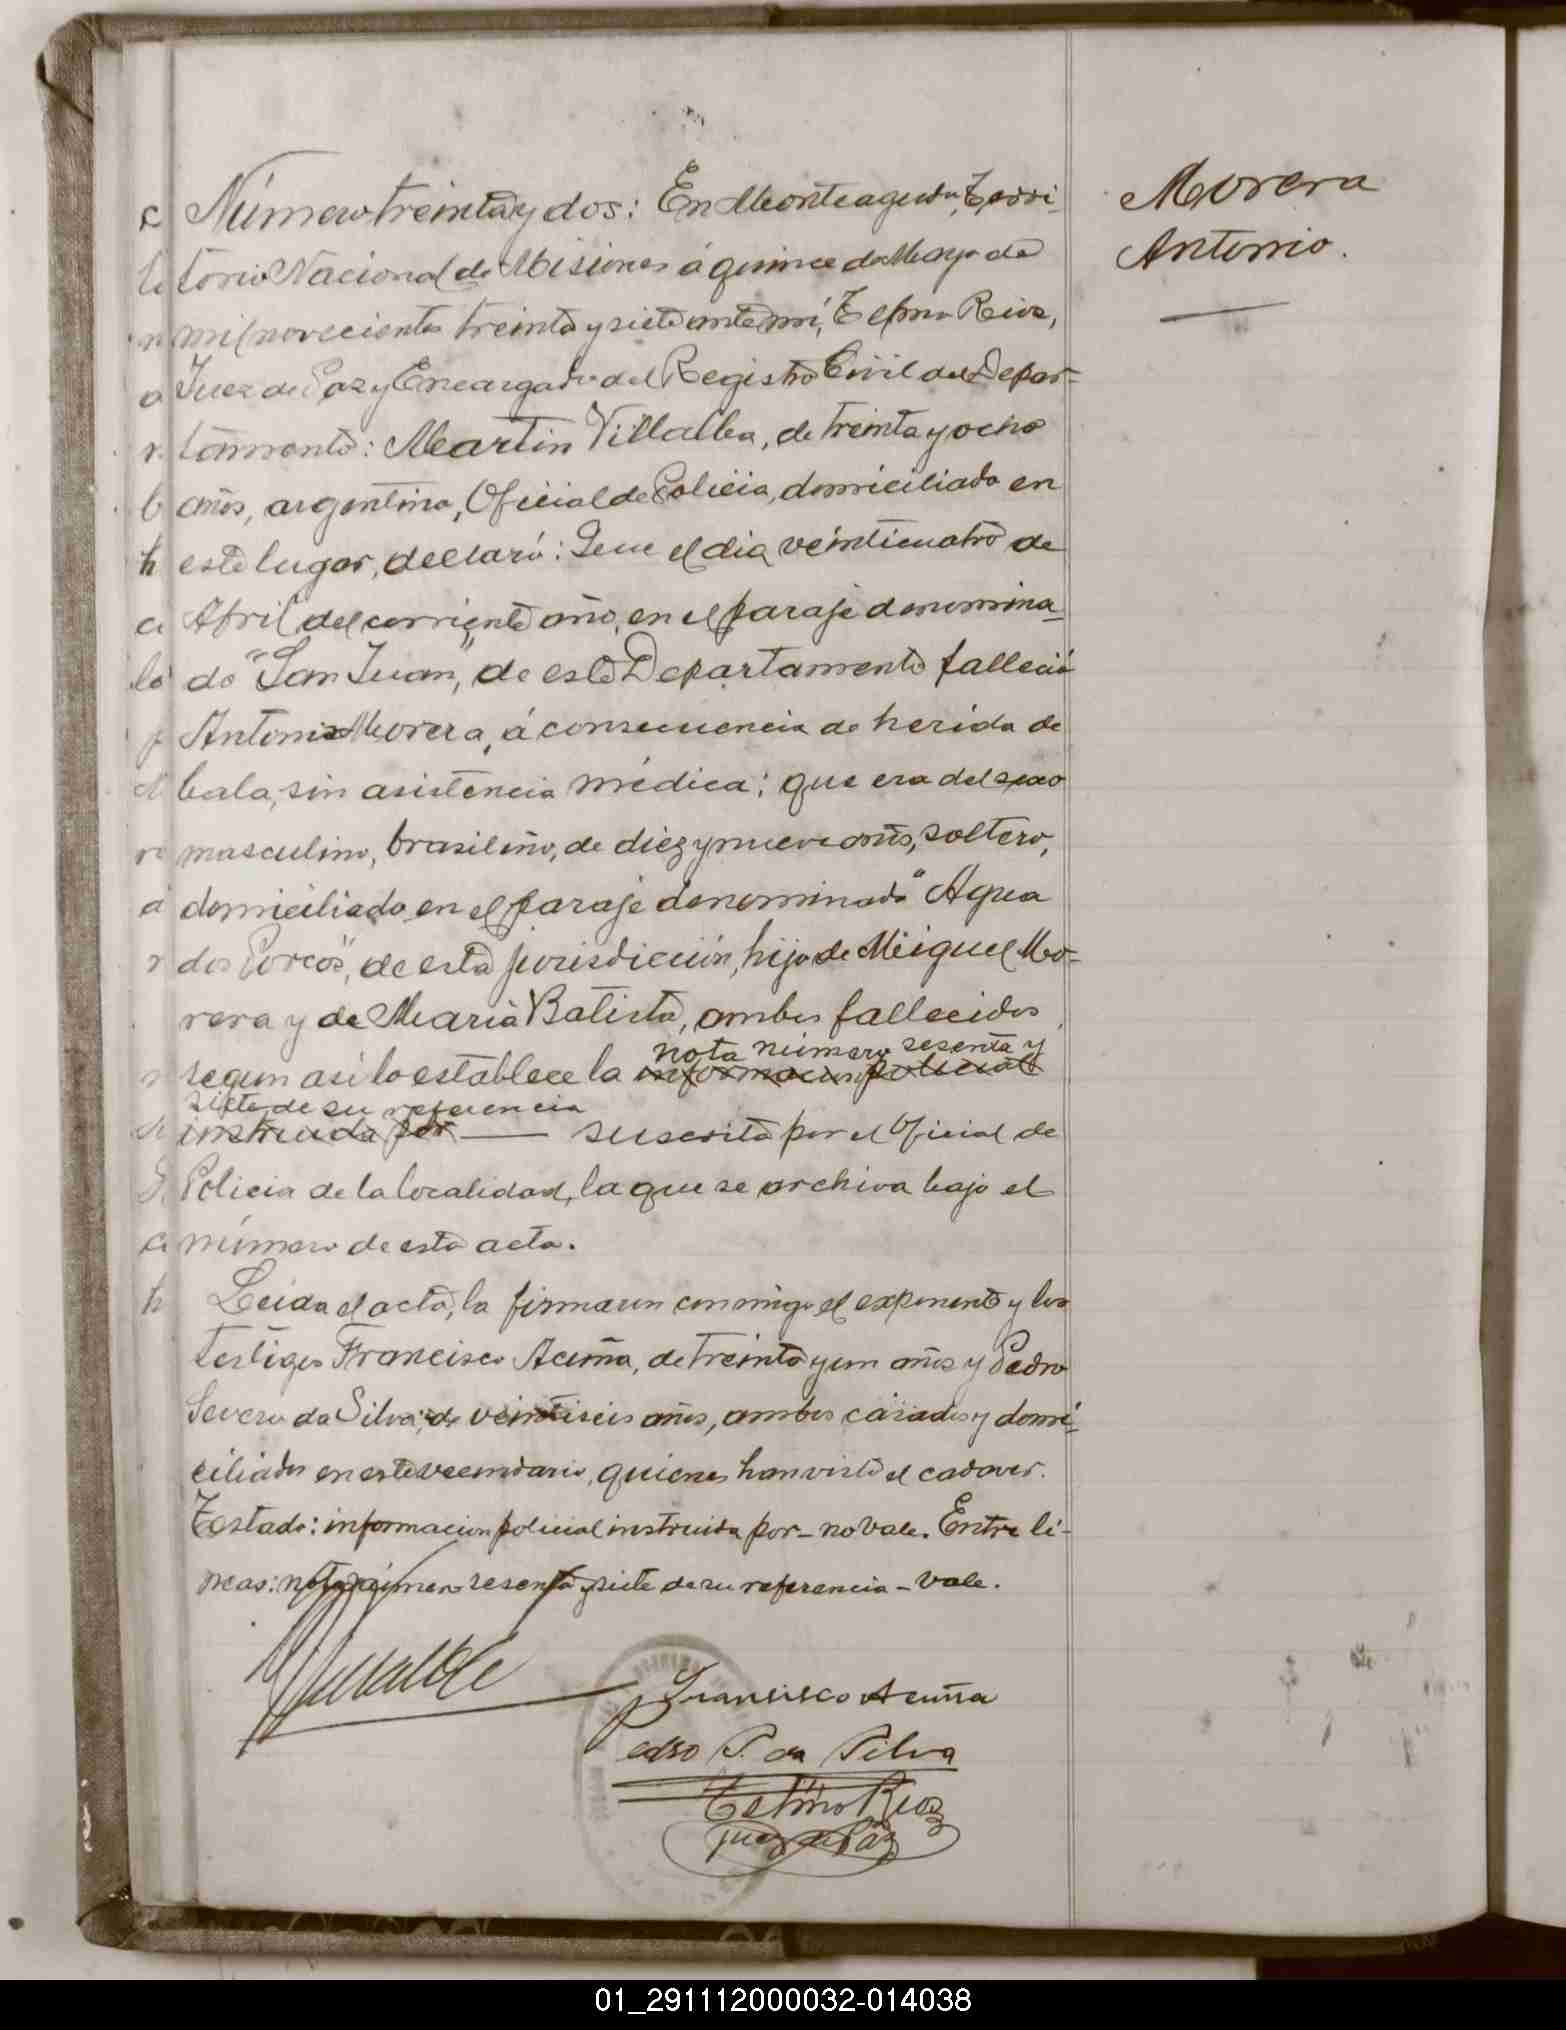 Número treinta y dos: En Monteagudo, Terri-
torio Nacional de Misiones á quince de Mayo de
mil novecientos treinta y siete ante mí, Telmo Rios,
Juez de Paz y Encargado del Registro Civil del Depar-
tamento: Martin Villalba, de treinta y ocho
años, argentino, Oficial de Policia, domiciliado en
este lugar, declaró: Que el dia veinticuatro de
Abril del corriente año, en el paraje denomina-
do "San Juan", de este Departamento falleció
Antonio Morera, á consecuencia de herida de
bala, sin asistencia médica; que era del sexo
masculino, brasileño, de diez y nueve años, soltero,
domiciliado en el paraje denominado "Agua
dos Porcos", de esta jurisdicción, hijo de Miguel Mo-
rera y de Maria Batista, ambos fallecidos
nota número sesenta y
segun asi lo establece la informacion policial
siete de su referencia
instruida por — suscrita por el Oficial de
Policia de la localidad, la que se archiva bajo el
número de esta acta.
Leida el acta, la firmaron conmigo el exponente y los
testigos Francisco Acuña, de treinta y un años y Pedro
Severo da Silva, de veintiseis años, ambos casados y domi-
ciliados en este vecindario, quienes han visto el cadaver.
Testado: informacion policial instruida por - no vale. Entre li-
neas: nota número sesenta y siete de su referencia - vale.
Francisco Acuña
Pedro S. da Silva
Telmo Rios
Juez de Paz
Morera
Antonio.
01_291112000032-014038